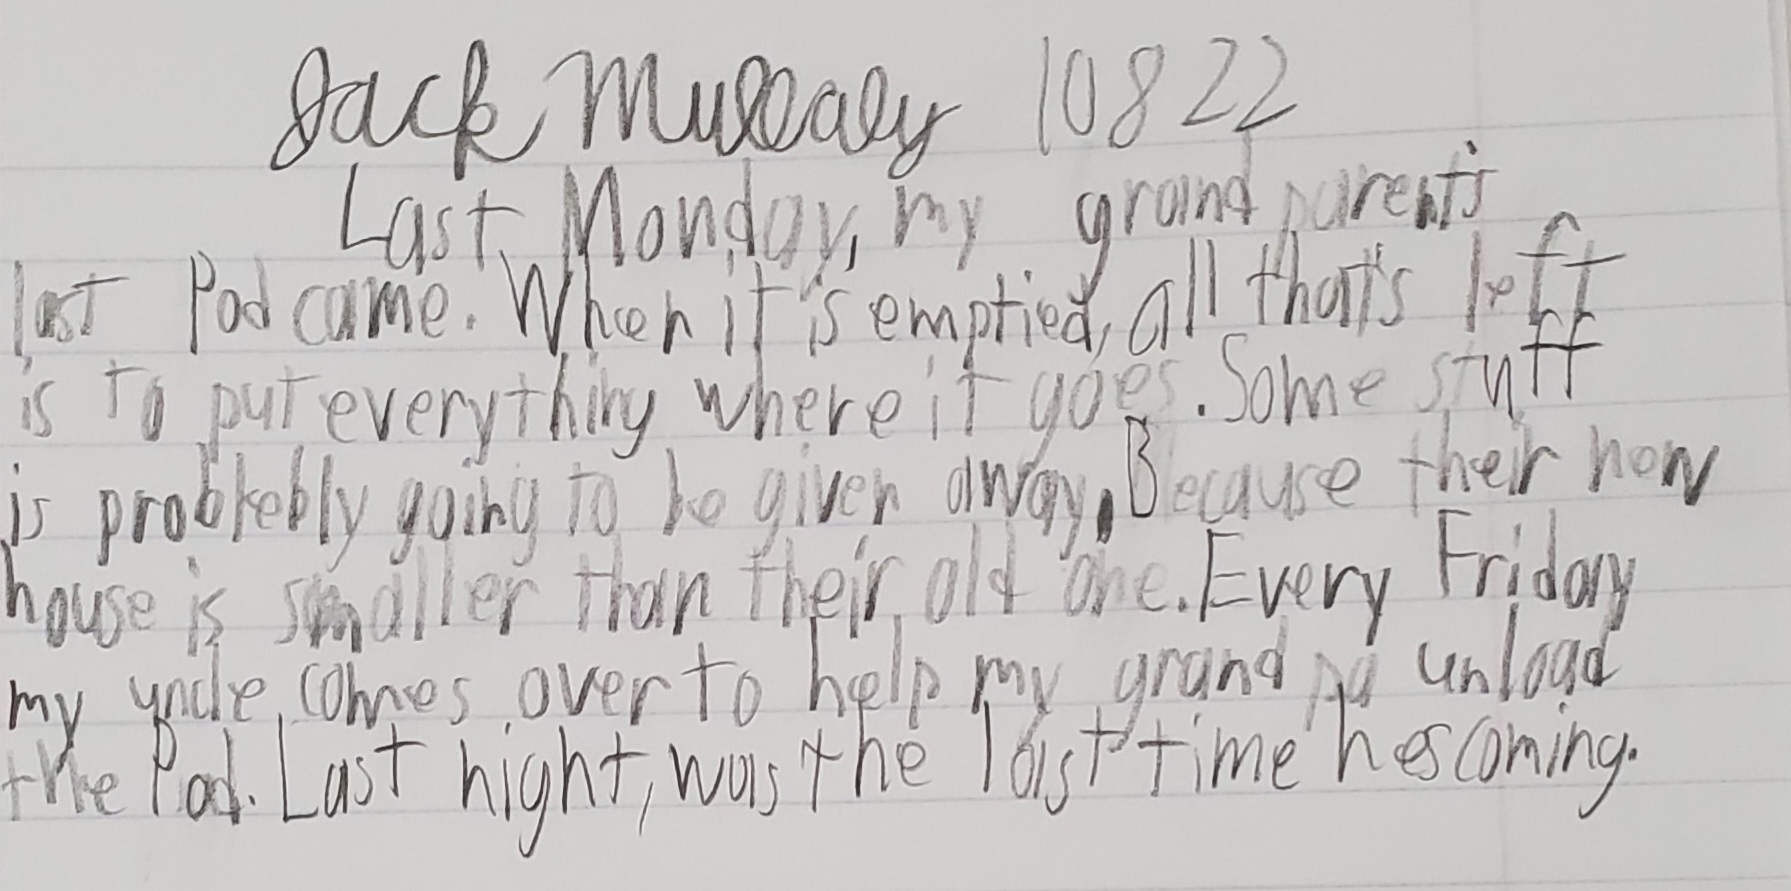 Jack Mullaly 10822
Last Monday, my grand parents
last Pod came. When it is emptied, all that's left
is to put everything where it goes. Some stuff
is probkebly going to be given away, Because their new
house is smaller than their old one. Every Friday
my uncle comes over to help my grand pa unload
the Pod. Last night, was the last time hes coming.